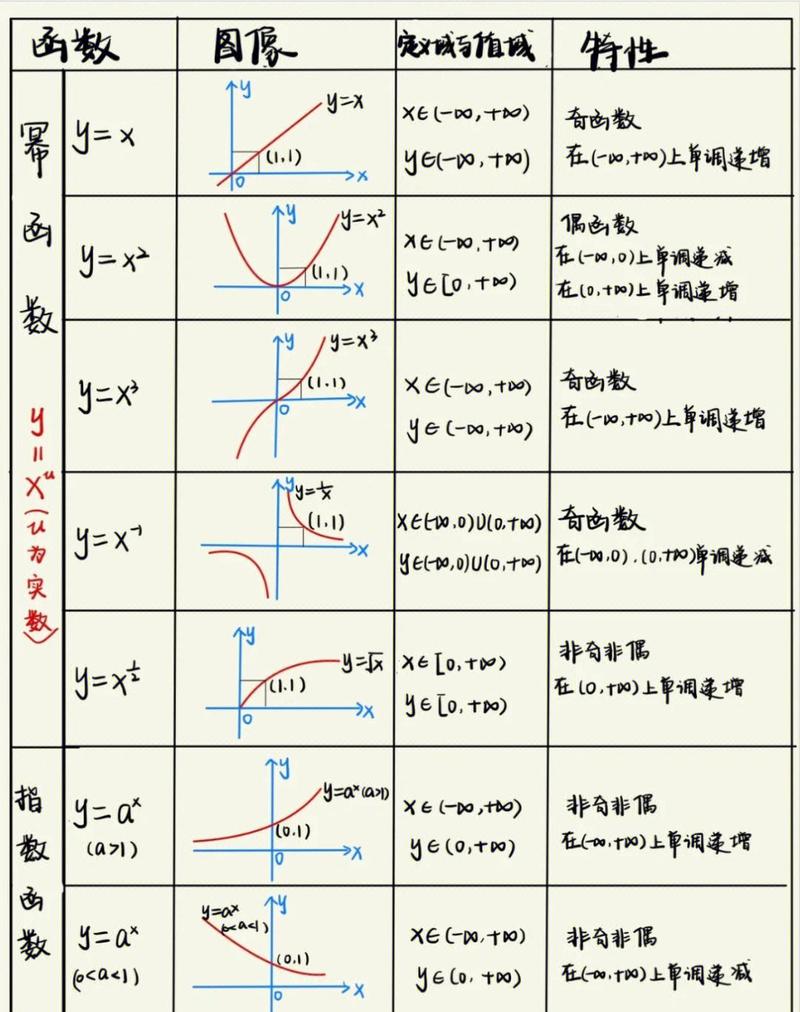 函数 图像 定义域与值域 特性
幂函数 y=x^u (u为实数)
y=x
y
y=x
(1,1)
0
x
x∈(-∞,+∞)
y∈(-∞,+∞)
奇函数
在(-∞,+∞)上单调递增
y=x²
y
y=x²
(1,1)
0
x
x∈(-∞,+∞)
y∈[0,+∞)
偶函数
在(-∞,0)上单调递减
在(0,+∞)上单调递增
y=x³
y
y=x³
(1,1)
0
x
x∈(-∞,+∞)
y∈(-∞,+∞)
奇函数
在(-∞,+∞)上单调递增
y=x⁻¹
y
y=1/x
(1,1)
x
x∈(-∞,0)∪(0,+∞)
y∈(-∞,0)∪(0,+∞)
奇函数
在(-∞,0).(0,+∞)单调递减
y=x^½
y
y=√x
(1,1)
0
x
x∈[0,+∞)
y∈[0,+∞)
非奇非偶
在(0,+∞)上单调递增
指数函数
y=aˣ
(a>1)
y
y=aˣ(a>1)
(0,1)
0
x
x∈(-∞,+∞)
y∈(0,+∞)
非奇非偶
在(-∞,+∞)上单调递增
y=aˣ
(0<a<1)
y
y=aˣ
(0<a<1)
(0,1)
0
x
x∈(-∞,+∞)
y∈(0,+∞)
非奇非偶
在(-∞,+∞)上单调递减